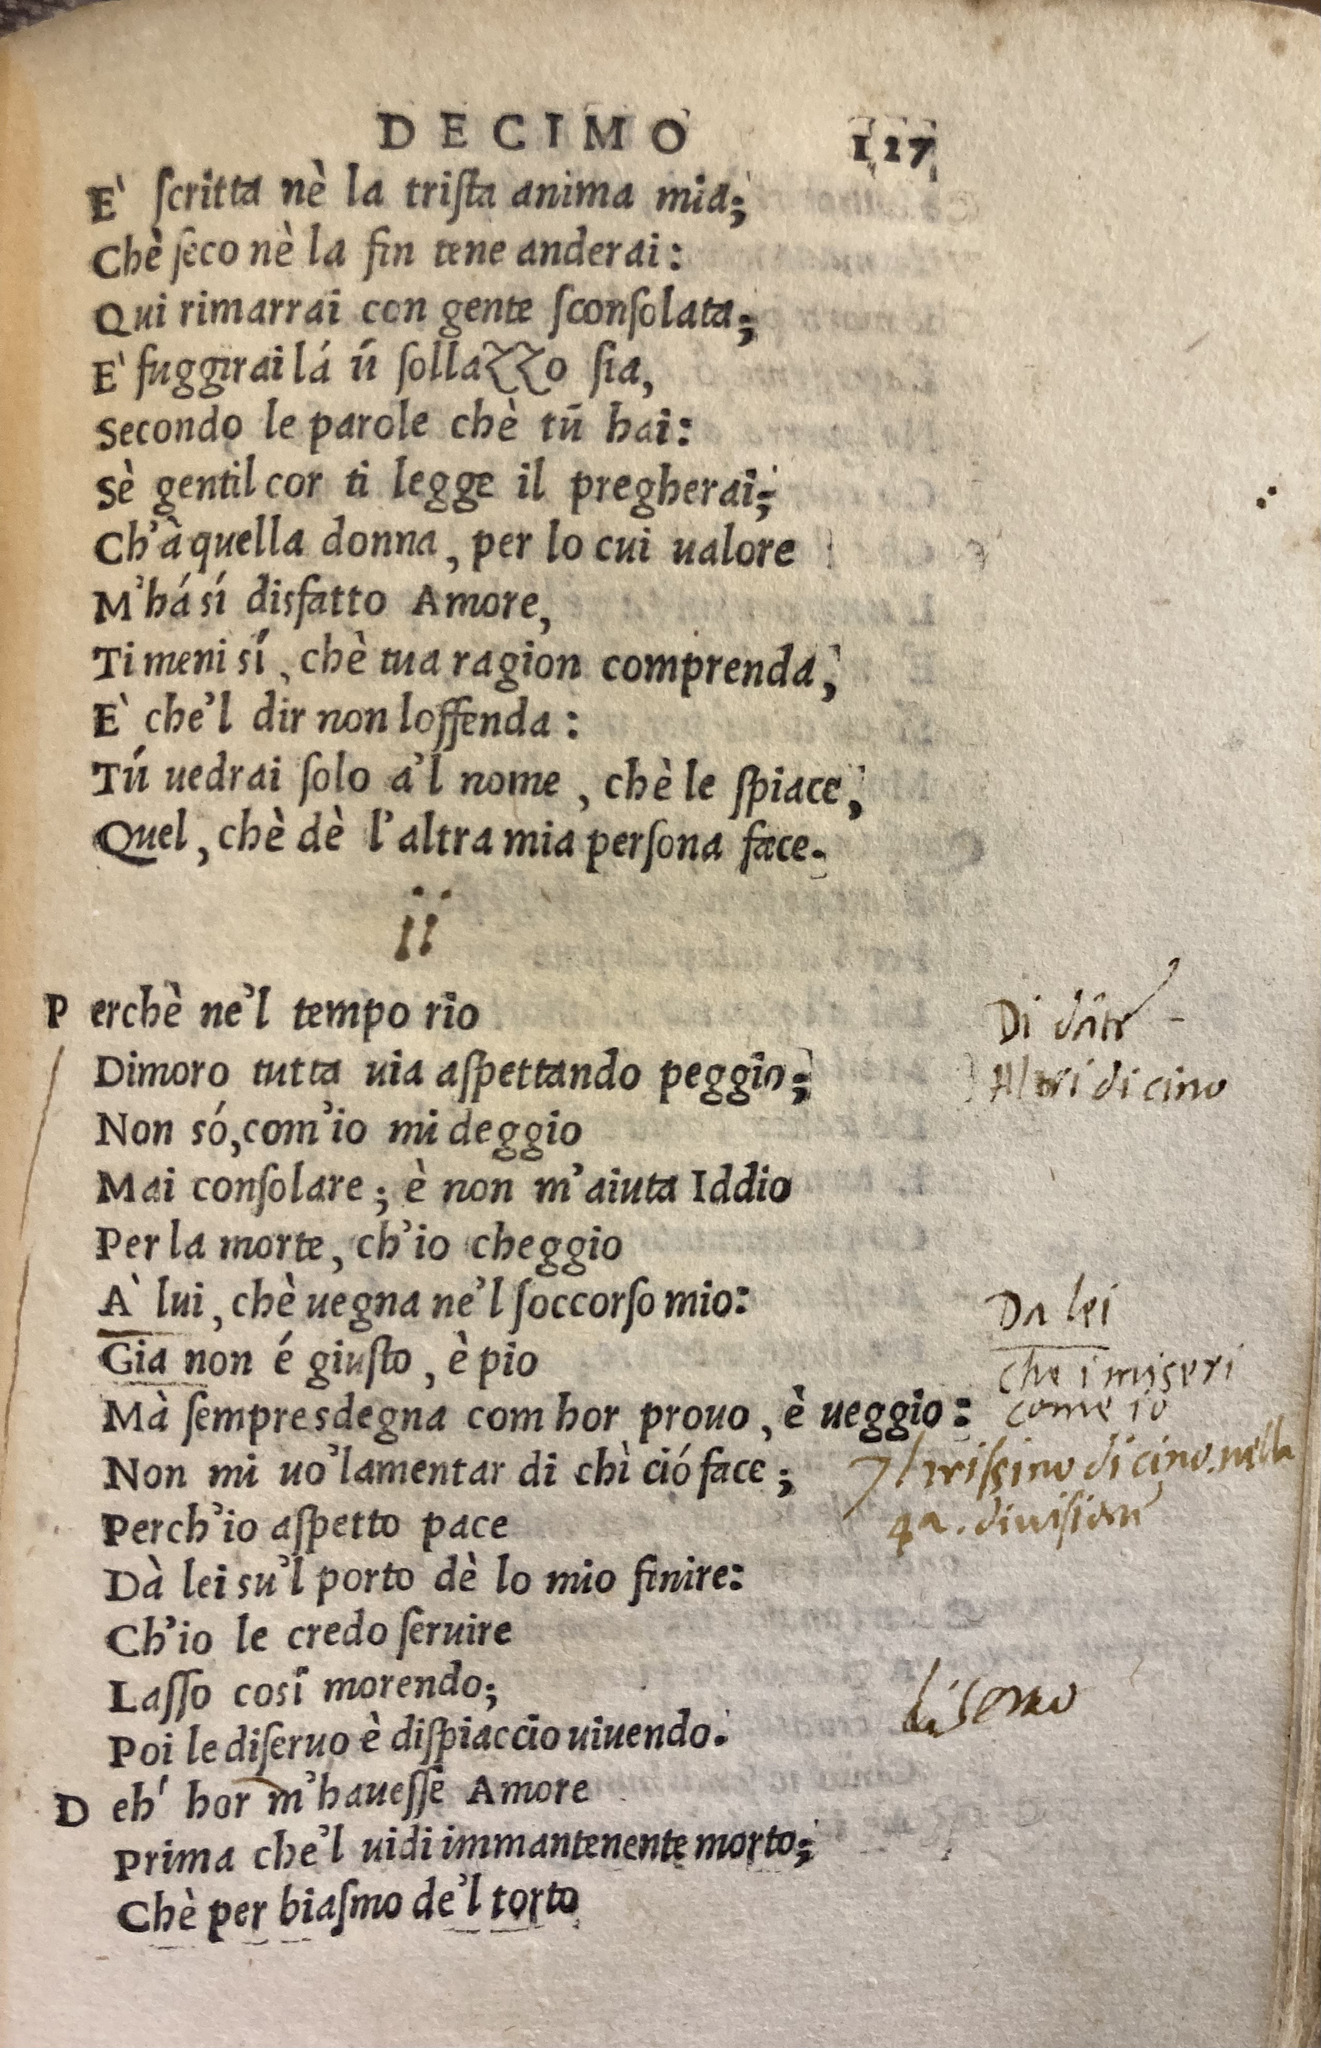 DECIMO 127
E' ſcritta nè la triſta anima mia;
Chè ſeco nè la fin tene anderai:
Qui rimarrai con gente ſconſolata;
E' fuggirai lá ú ſollazzo ſia,
Secondo le parole chè tú hai:
Sè gentil cor ti legge il pregherai;
Ch'à quella donna, per lo cui ualore
M'há sí disfatto Amore,
Ti meni sí, chè tua ragion comprenda,
E' che'l dir non loffenda:
Tú uedrai ſolo a'l nome, chè le ſpiace,
Quel, chè dè l'altra mia perſona face.
ii
Perchè ne'l tempo rio
Di dãte
Dimoro tutta uia aſpettando peggio;
Altri di cino
Non só, com'io mi deggio
Mai conſolare; è non m'aiuta Iddio
Per la morte, ch'io cheggio
A' lui, chè uegna ne'l ſoccorſo mio:
Da lei
Gia non é giuſto, è pio
che i miseri
come io
Mà ſempre sdegna com hor prouo, è ueggio:
Non mi uo'lamentar di chì ció face;
Il triſsino di cino. nella
4a. diuisione
Perch'io aſpetto pace
Dà lei su'l porto dè lo mio finire:
Ch'io le credo ſeruire
Laſſo cosí morendo;
Poi le diſeruo è diſpiaccio uiuendo.
Deh' hor m'haueſſe Amore
Prima che'l uidi immantenente morto;
Chè per biaſmo de'l torto